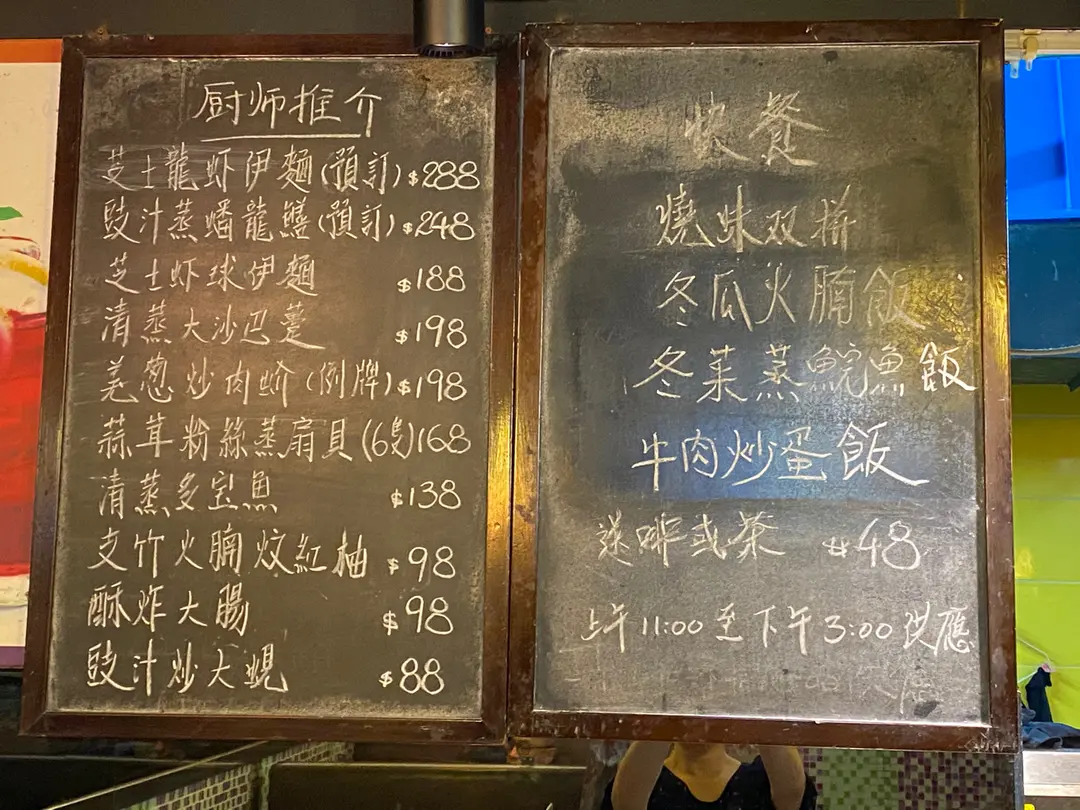 厨师推介
芝士龍虾伊麵(預訂) $288
豉汁蒸蟠龍鱔(預訂) $248
芝士虾球伊麵 $188
清蒸大沙巴躉 $198
姜葱炒肉蚧(例牌) $198
蒜茸粉絲蒸扇貝(6隻)168
清蒸多宝魚 $138
支竹火腩炆紅柚 $98
酥炸大腸 $98
豉汁炒大蜆 $88
快餐
燒味双拼
冬瓜火腩飯
冬菜蒸鯇魚飯
牛肉炒蛋飯
送啡或茶 $48
上午11:00至下午3:00供應